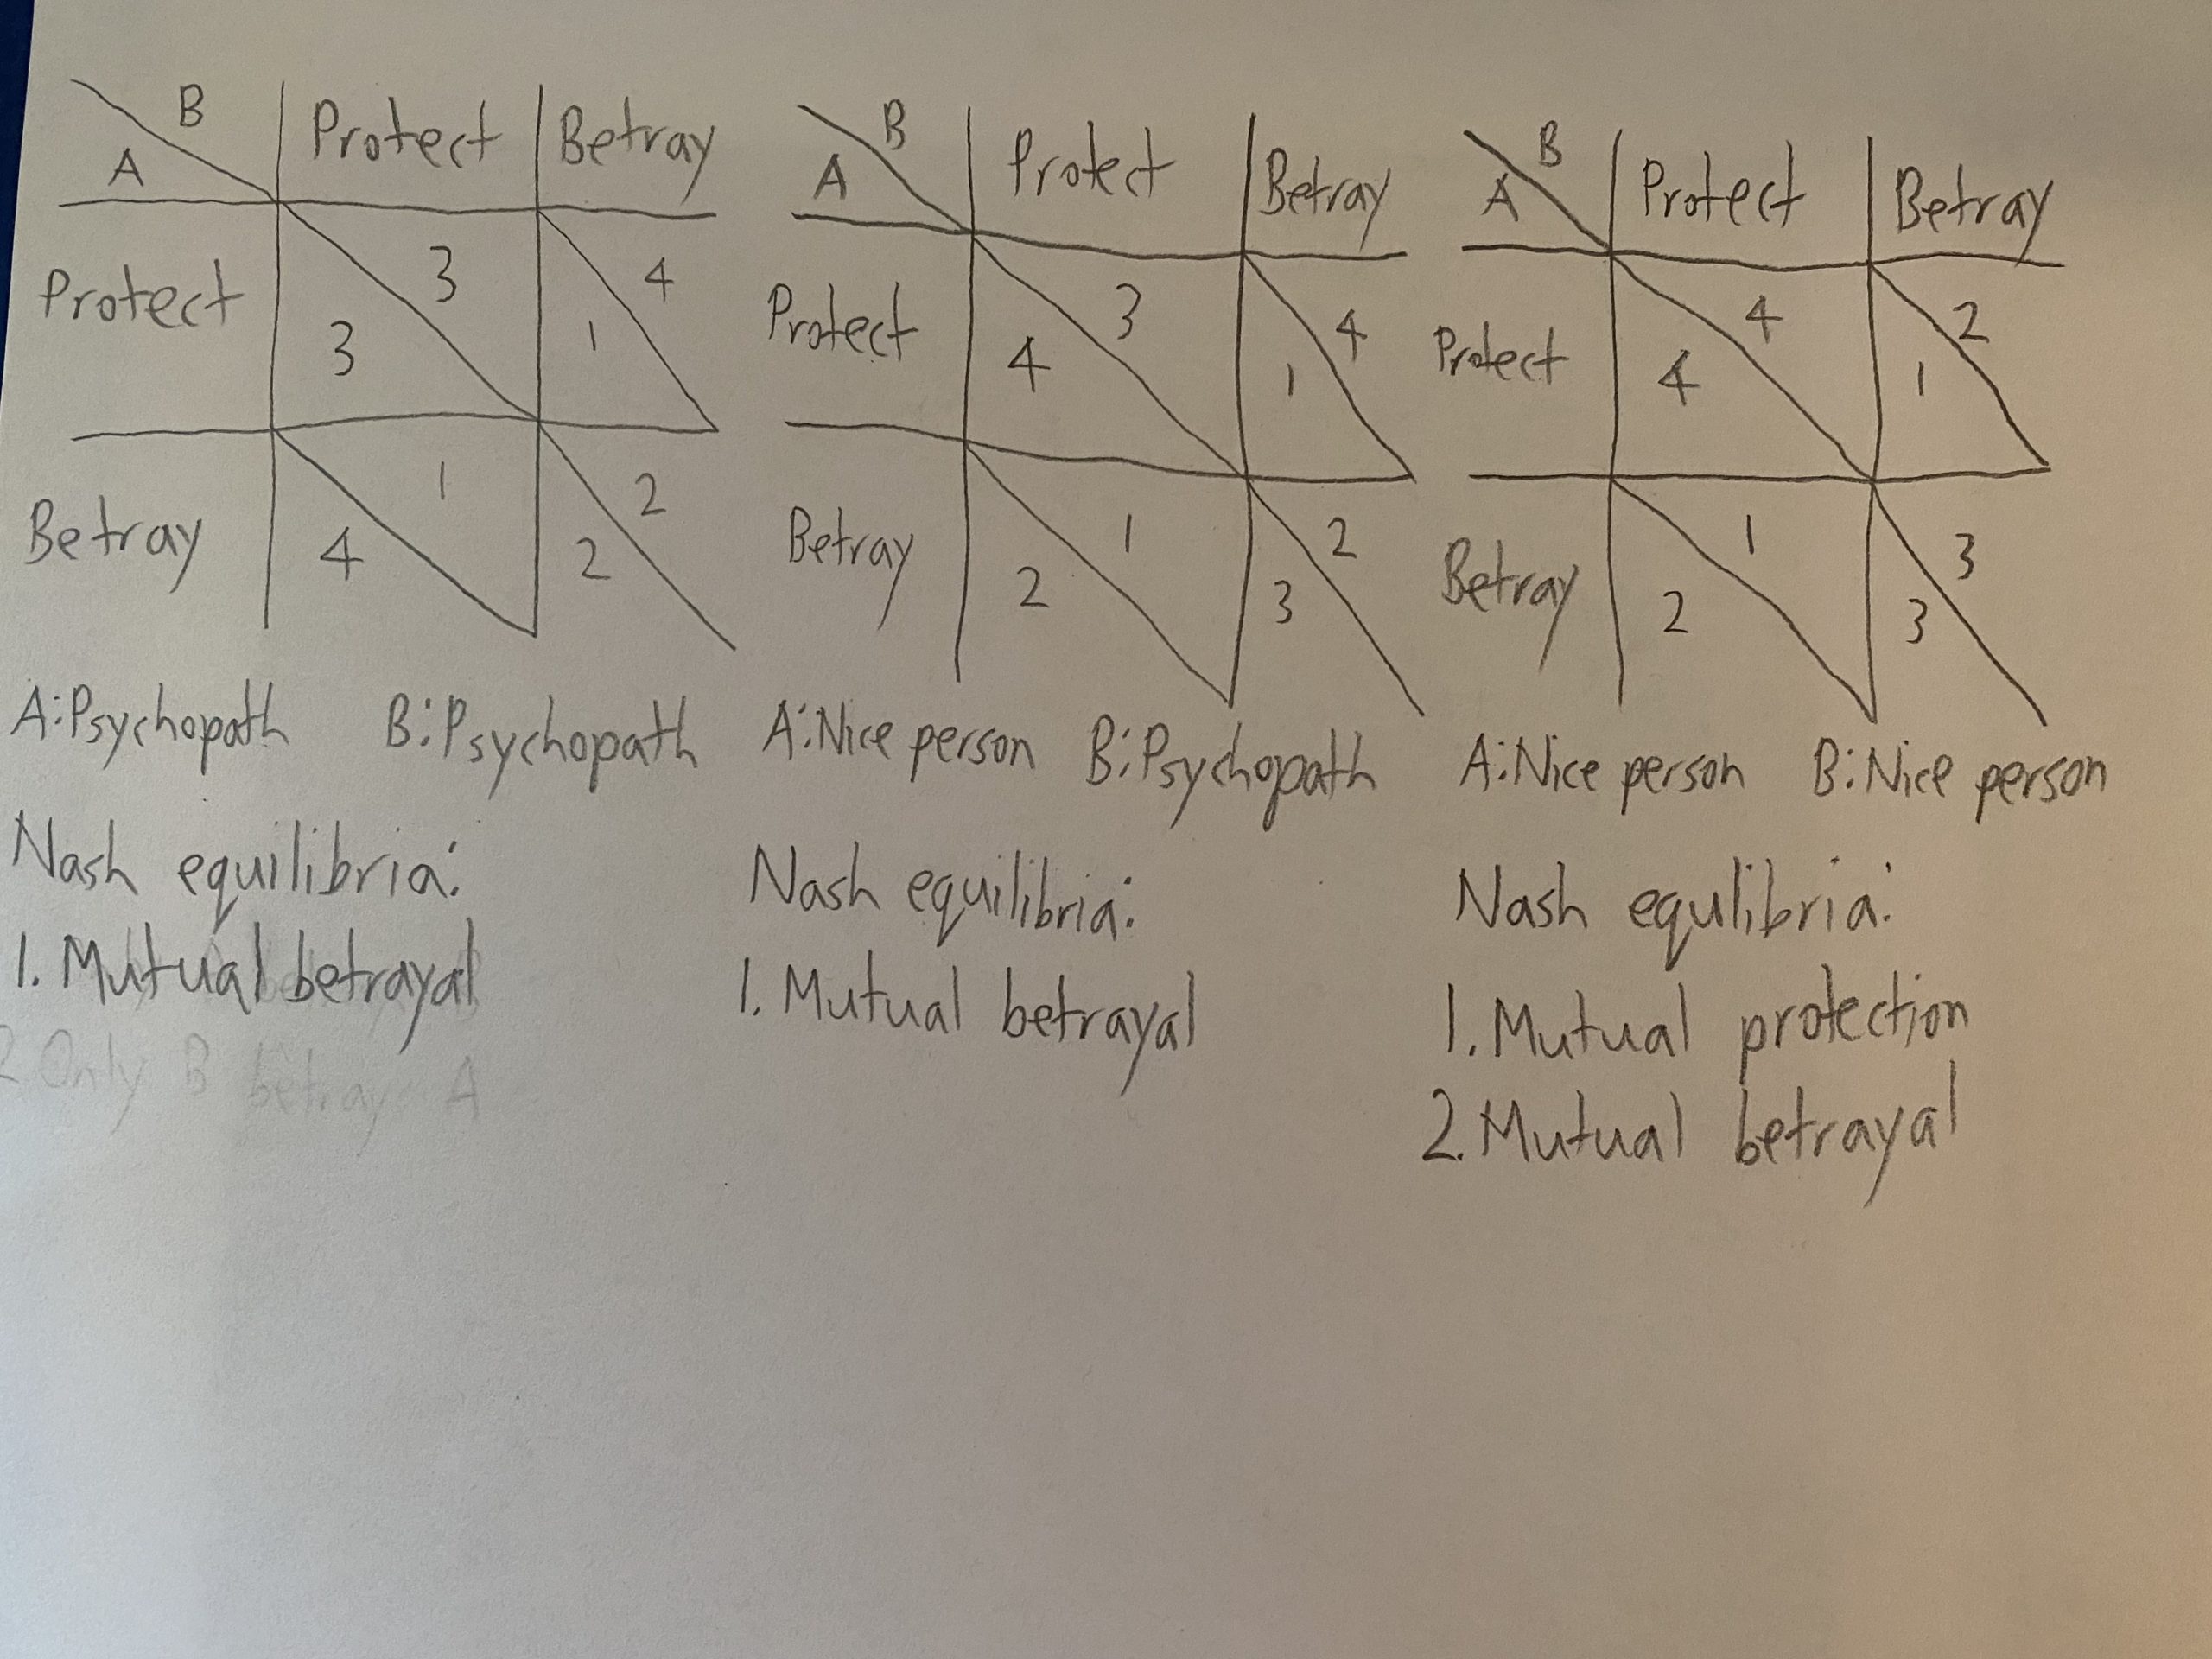 B Protect Betray
A
Protect 3 3 4 1
Betray 1 4 2 2
A:Psychopath B:Psychopath
Nash equilibria:
1. Mutual betrayal
2 Only B betray A
B Protect Betray
A
Protect 3 4 4 1
Betray 1 2 2 3
A:Nice person B:Psychopath
Nash equilibria:
1. Mutual betrayal
B Protect Betray
A
Protect 4 4 2 1
Betray 1 2 3 3
A:Nice person B:Nice person
Nash equlibria:
1. Mutual protection
2. Mutual betrayal